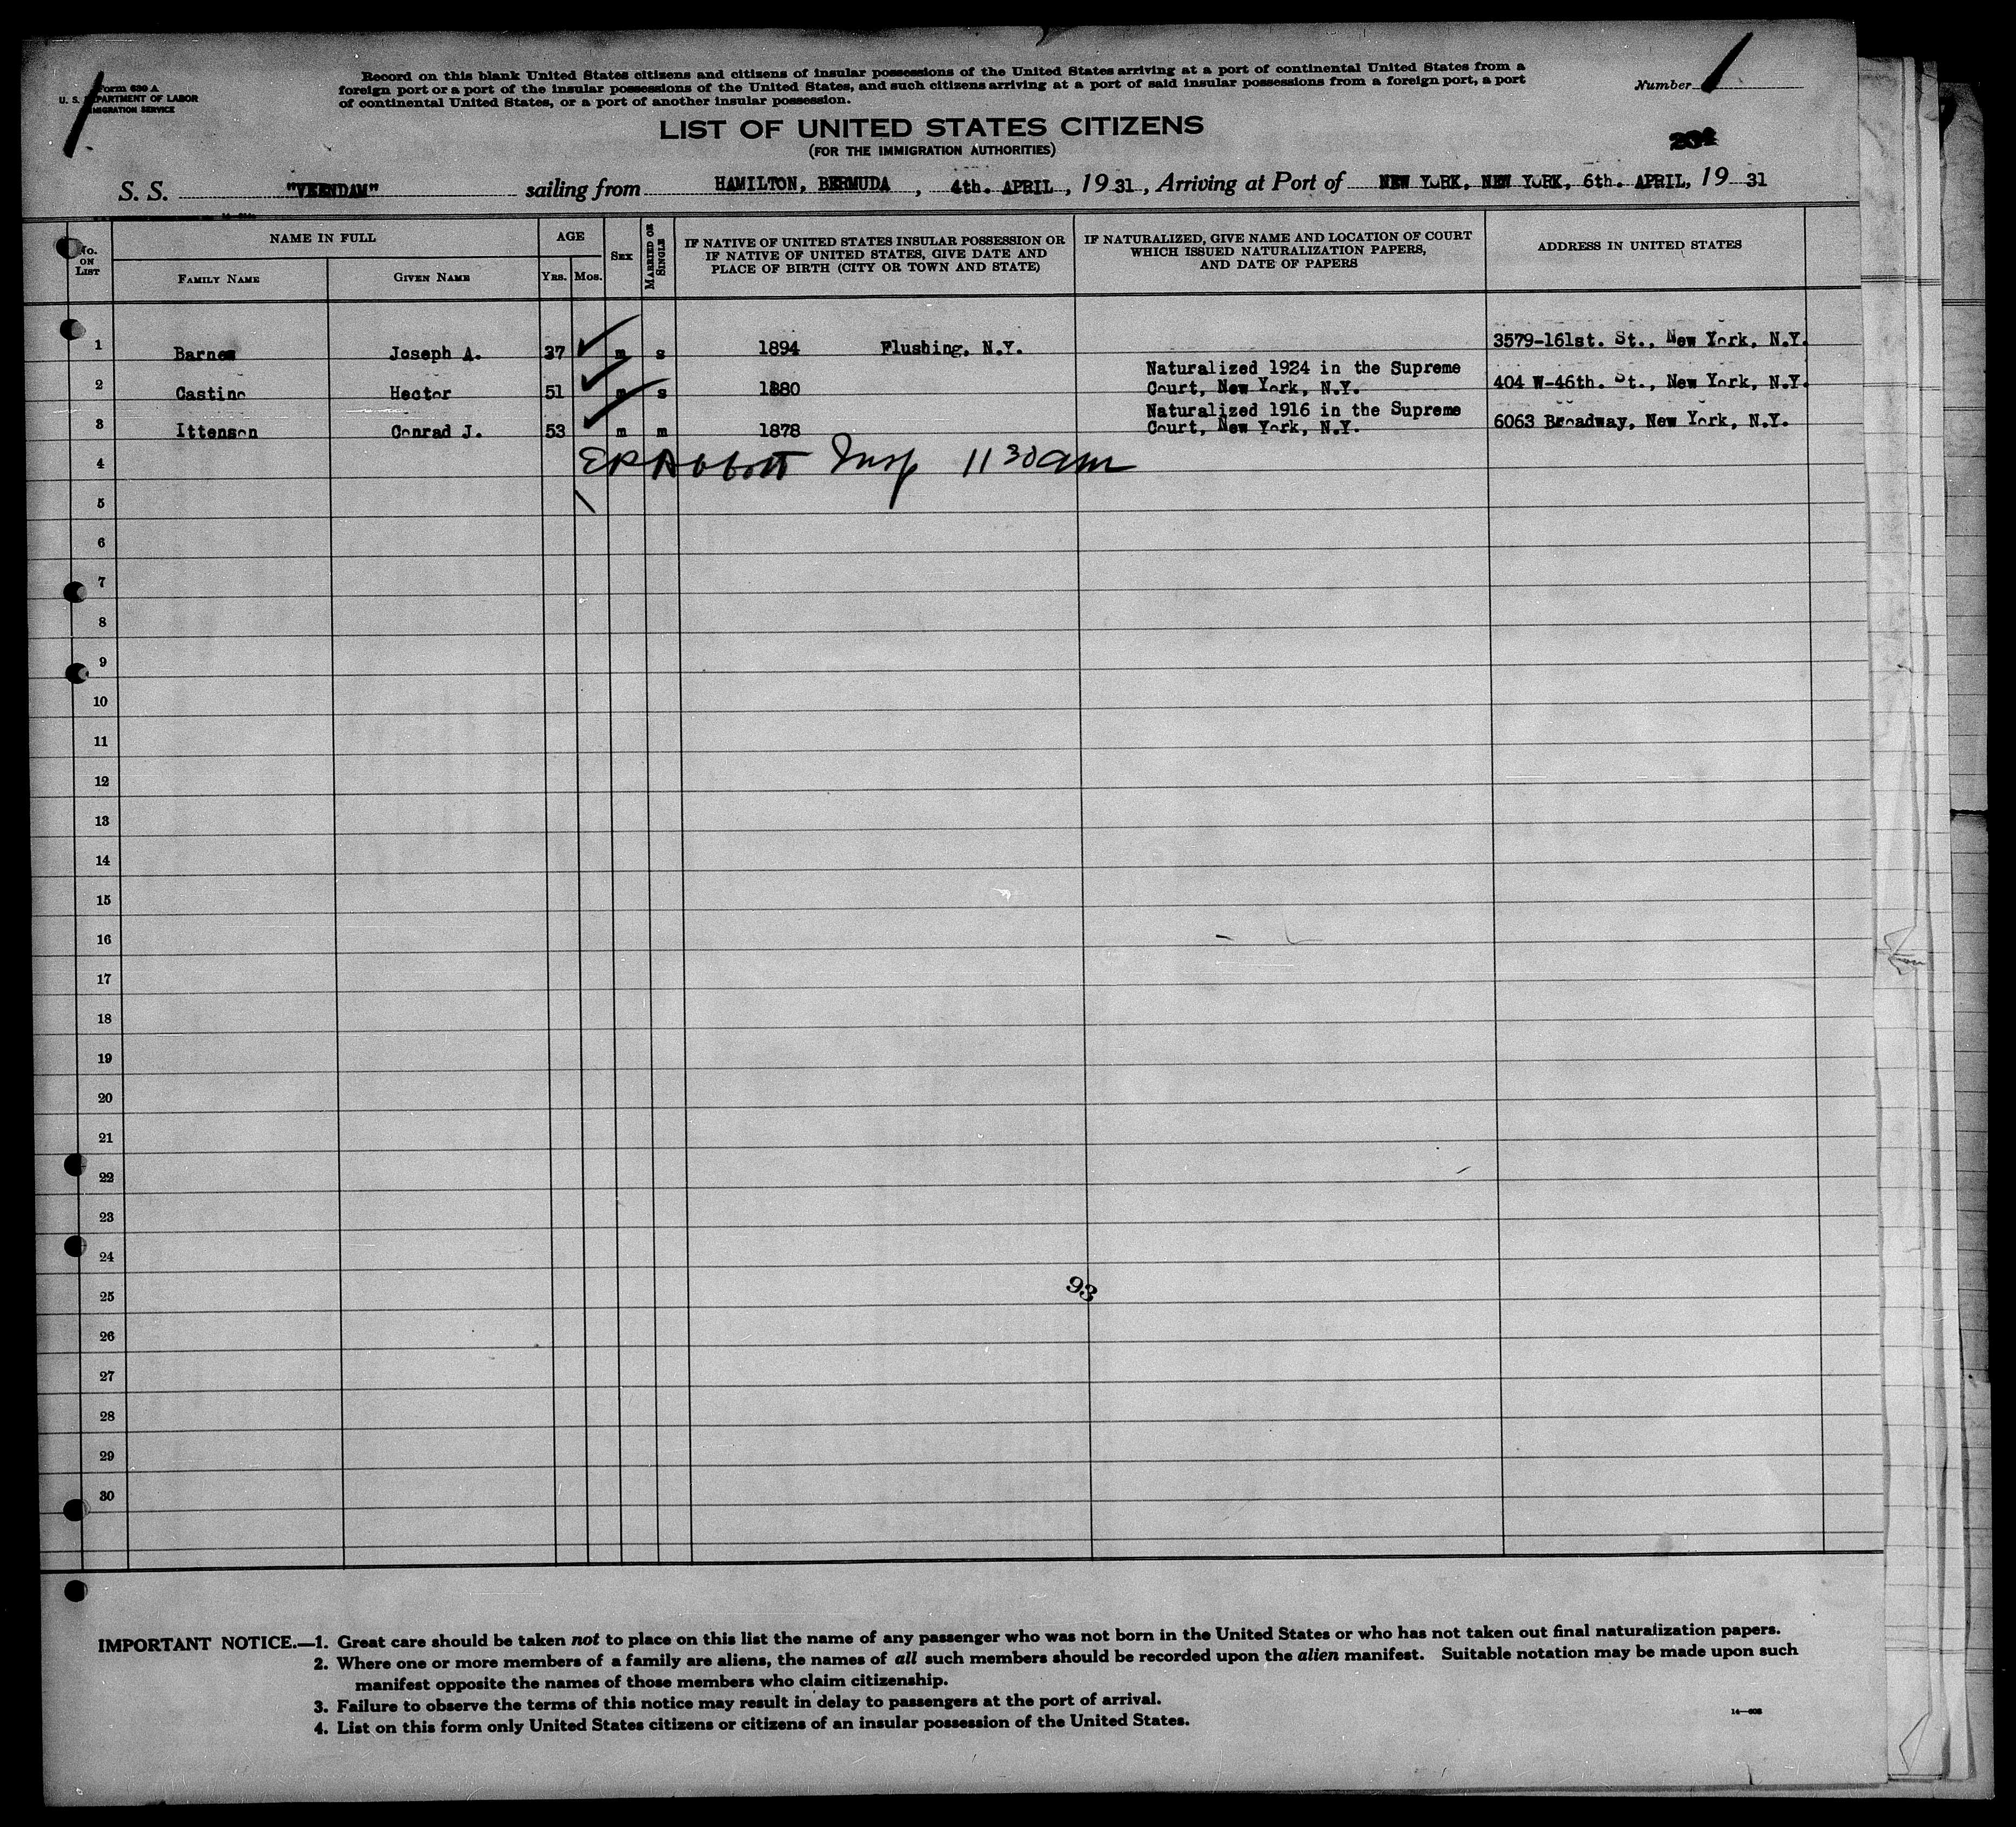 Form 630 A
U. S. DEPARTMENT OF LABOR
IMMIGRATION SERVICE
Record on this blank United States citizens and citizens of insular possessions of the United States arriving at a port of continental United States from a
foreign port or a port of the insular possessions of the United States, and such citizens arriving at a port of said insular possessions from a foreign port, a port
of continental United States, or a port of another insular possession.
Number 1
LIST OF UNITED STATES CITIZENS
(FOR THE IMMIGRATION AUTHORITIES)
S. S. "VEENDAM" sailing from HAMILTON, BERMUDA, 4th. APRIL, 19 31, Arriving at Port of NEW YORK, NEW YORK, 6th. APRIL, 19 31
No. ON LIST
NAME IN FULL
FAMILY NAME
GIVEN NAME
AGE
YRS.
MOS.
SEX
MARRIED OR SINGLE
IF NATIVE OF UNITED STATES INSULAR POSSESSION OR
IF NATIVE OF UNITED STATES, GIVE DATE AND
PLACE OF BIRTH (CITY OR TOWN AND STATE)
IF NATURALIZED, GIVE NAME AND LOCATION OF COURT
WHICH ISSUED NATURALIZATION PAPERS,
AND DATE OF PAPERS
ADDRESS IN UNITED STATES
1 Barnes Joseph A. 37 m s 1894 Flushing, N.Y. 3579-161st. St., New York, N.Y.
2 Castino Hector 51 m s 1880 Naturalized 1924 in the Supreme
Court, New York, N.Y. 404 W-46th. St., New York, N.Y.
3 Ittenson Conrad J. 53 m m 1878 Naturalized 1916 in the Supreme
Court, New York, N.Y. 6063 Broadway, New York, N.Y.
4 E R Abbott Insp 11 30 am
5
6
7
8
9
10
11
12
13
14
15
16
17
18
19
20
21
22
23
24
93
25
26
27
28
29
30
IMPORTANT NOTICE.—1. Great care should be taken not to place on this list the name of any passenger who was not born in the United States or who has not taken out final naturalization papers.
2. Where one or more members of a family are aliens, the names of all such members should be recorded upon the alien manifest. Suitable notation may be made upon such
manifest opposite the names of those members who claim citizenship.
3. Failure to observe the terms of this notice may result in delay to passengers at the port of arrival.
4. List on this form only United States citizens or citizens of an insular possession of the United States.